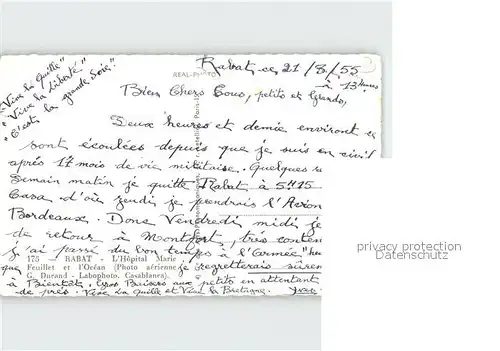 "Vive la Quille"
"Vive la Liberté"
"C'est la grande Joie"
REAL-PHOTO
Rabat, ce 21/8/55
à 13 heures
Bien Chers Tous, petits et Grands,
Deux heures et demie environt
sont écoulées depuis que je suis en civil
après 17 mois de vie militaise. Quelques
Demain matin je quitte Rabat à 5h15
Casa d'où jeudi je prendrais l'Avion
Bordeaux. Donc Vendredi midi je
de retour à Montfort, très conten
j'ai passé du bon temps à l'Armée
175 - RABAT - L'Hôpital Marie
Feuillet et l'Océan (Photo aérienne)
G. Durand - Labophoto. Casablanca).
que je regretterais
à Bientôt, Gros Baisers aux petits en attentant
de près. Vive La Quille et Vive la Bretagne. Yves
privacy protection
Datenschutz